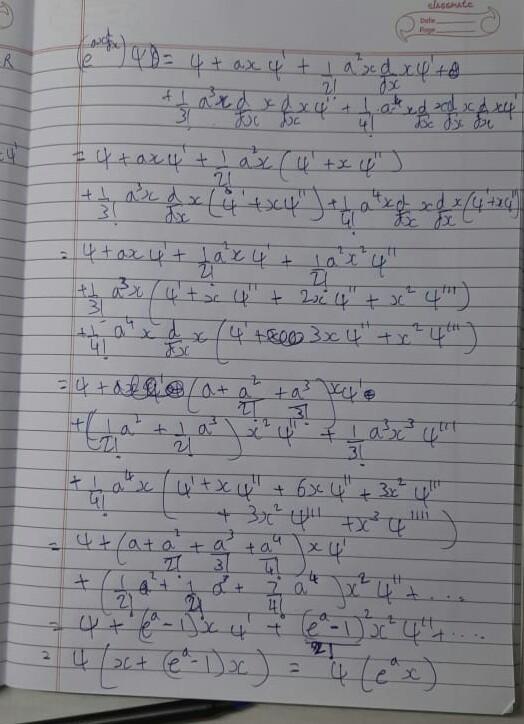 classmate
Date
Page
(e^{ax d/dx}) ψ = ψ + axψ' + 1/2! a²x d/dx xψ' +
+ 1/3! a³x d/dx x d/dx xψ' + 1/4! a⁴x d/dx x d/dx x d/dx xψ'
= ψ + axψ' + 1/2! a²x (ψ' + xψ'')
+ 1/3! a³x d/dx x (ψ' + xψ'') + 1/4! a⁴x d/dx x d/dx x (ψ' + xψ'')
= ψ + axψ' + 1/2! a²xψ' + 1/2! a²x²ψ''
+ 1/3! a³x (ψ' + xψ'' + 2xψ'' + x²ψ''')
+ 1/4! a⁴x d/dx x (ψ' + 3xψ'' + x²ψ''')
= ψ + (a + a²/2! + a³/3!) xψ'
+ (1/2! a² + 1/2! a³) x²ψ'' + 1/3! a³x³ψ'''
+ 1/4! a⁴x (ψ' + xψ'' + 6xψ'' + 3x²ψ'''
+ 3x²ψ''' + x³ψ'''')
= ψ + (a + a²/2! + a³/3! + a⁴/4!) xψ'
+ (1/2! a² + 1/2! a³ + 7/4! a⁴) x²ψ'' + ....
= ψ + (e^a - 1) xψ' + (e^a - 1)²/2! x²ψ'' + ....
= ψ (x + (e^a - 1) x) = ψ (e^a x)